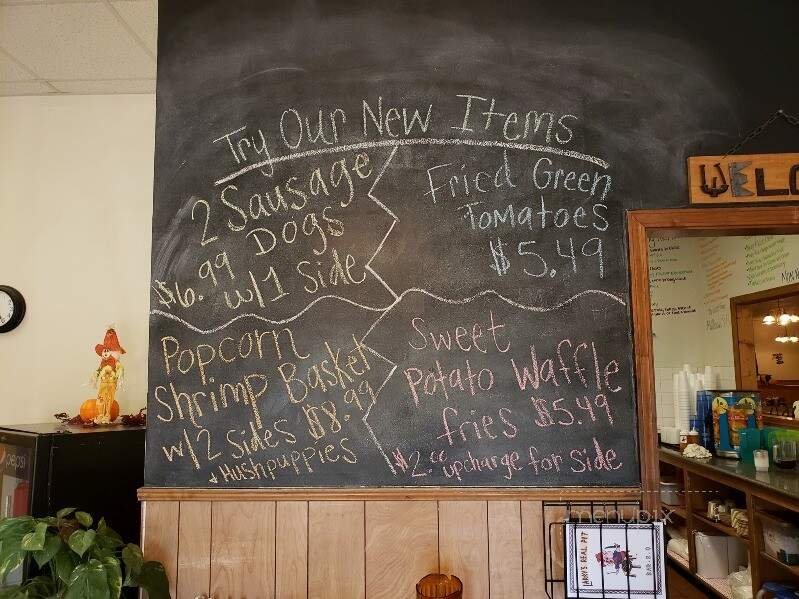 Try Our New Items
2 Sausage
Dogs
$6.99 w/1 side
Fried Green
Tomatoes
$5.49
Popcorn
Shrimp Basket
w/2 sides $8.99
+ Hushpuppies
Sweet
Potato Waffle
fries $5.49
$2.00 upcharge for side
WELC
pepsi
LARRY'S REAL PIT
BAR-B-Q
menupix